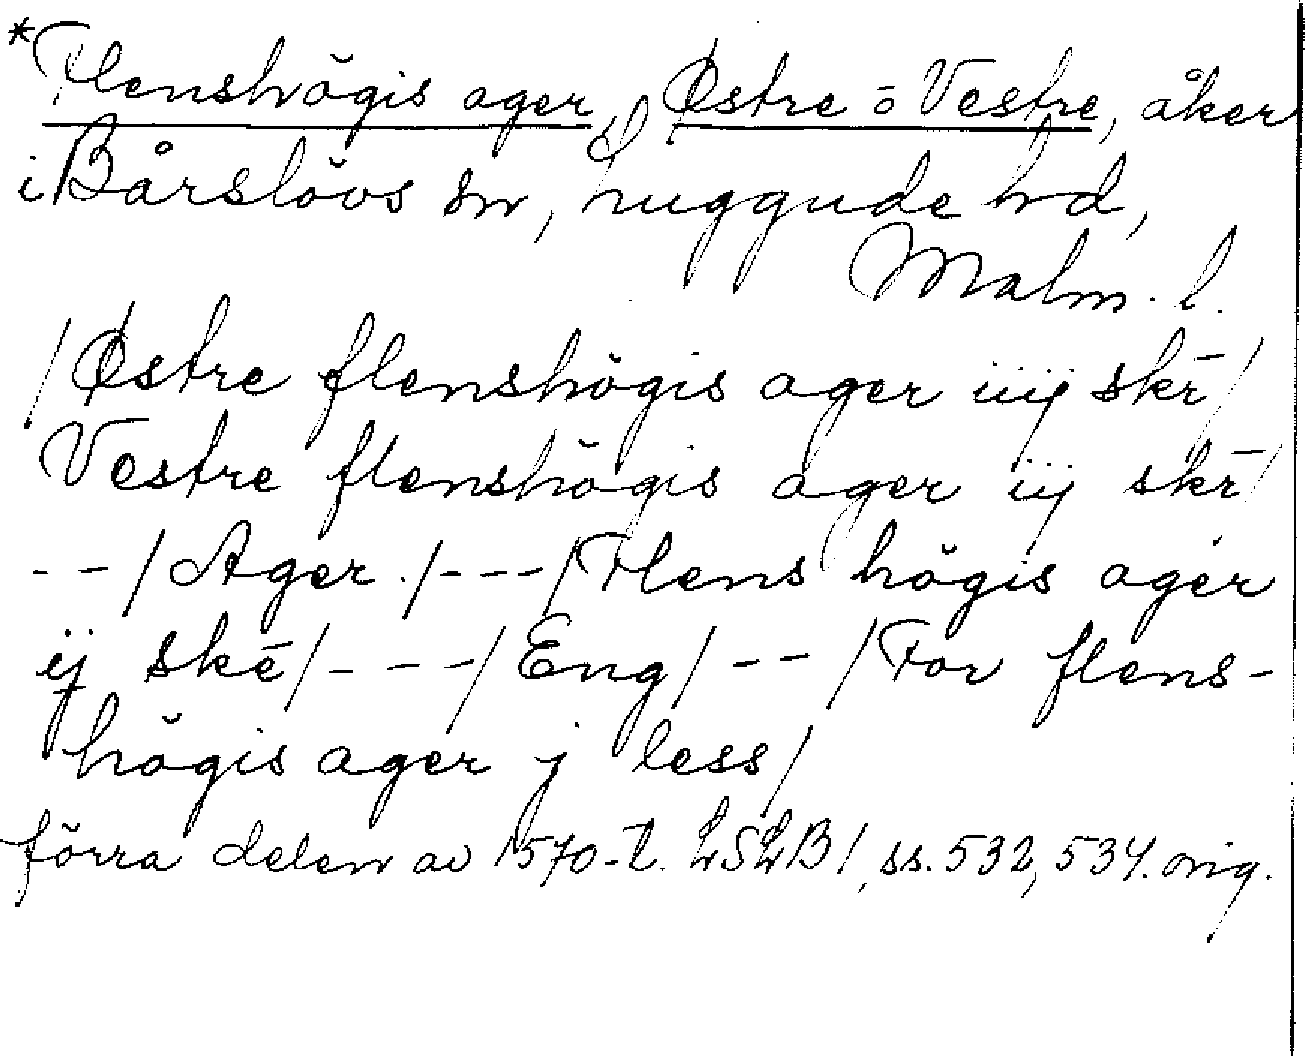 *Flenshögis ager, Østre o Vestre, åker
i Bårslövs sn, Luggude hd,
Malm. l.
/Østre flenshögis ager iiij skr̄/
Vestre flenshögis ager iij skr̄/
--/Ager./---/Flens högis ager
ij ske/---/Eng/--/For flens-
högis ager j less/
förra delen av 1570-t. LSLB1, ss. 532, 534. orig.